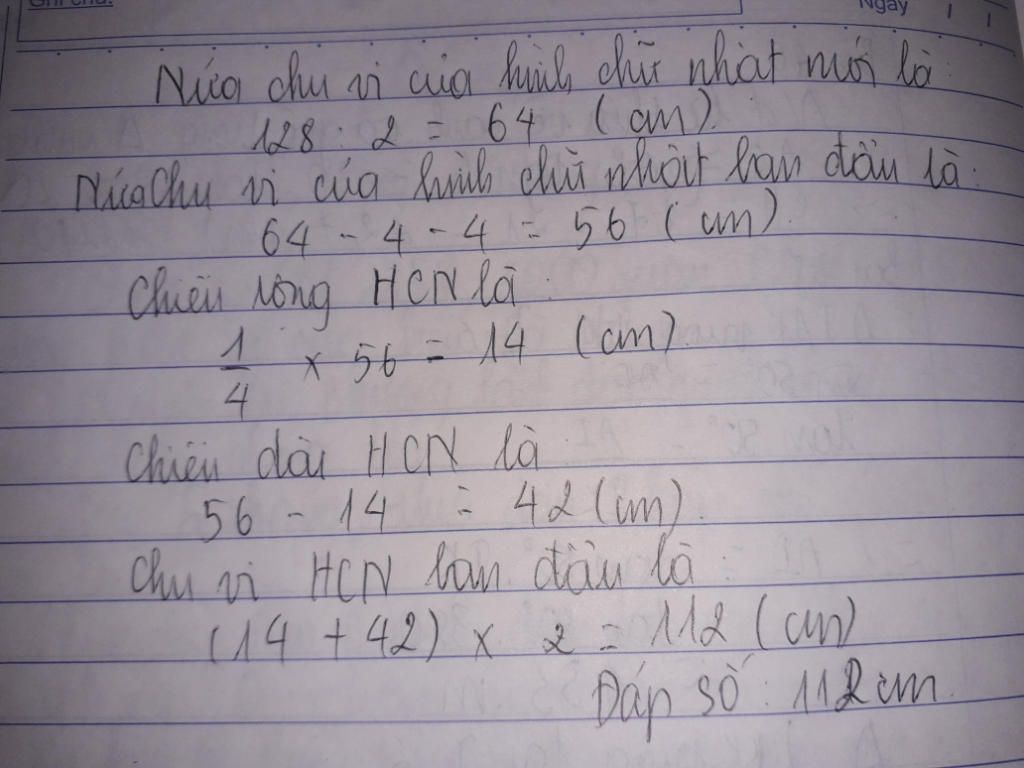 Ghi chú:
Ngày / /
Nửa chu vi của hình chữ nhật mới là:
128 : 2 = 64 (cm).
Nửa Chu vi của hình chữ nhật ban đầu là:
64 - 4 - 4 = 56 (cm).
Chiều rộng HCN là:
1/4 x 56 = 14 (cm)
Chiều dài HCN là
56 - 14 = 42 (cm).
Chu vi HCN ban đầu là:
(14 + 42) x 2 = 112 (cm)
Đáp số: 112 cm.